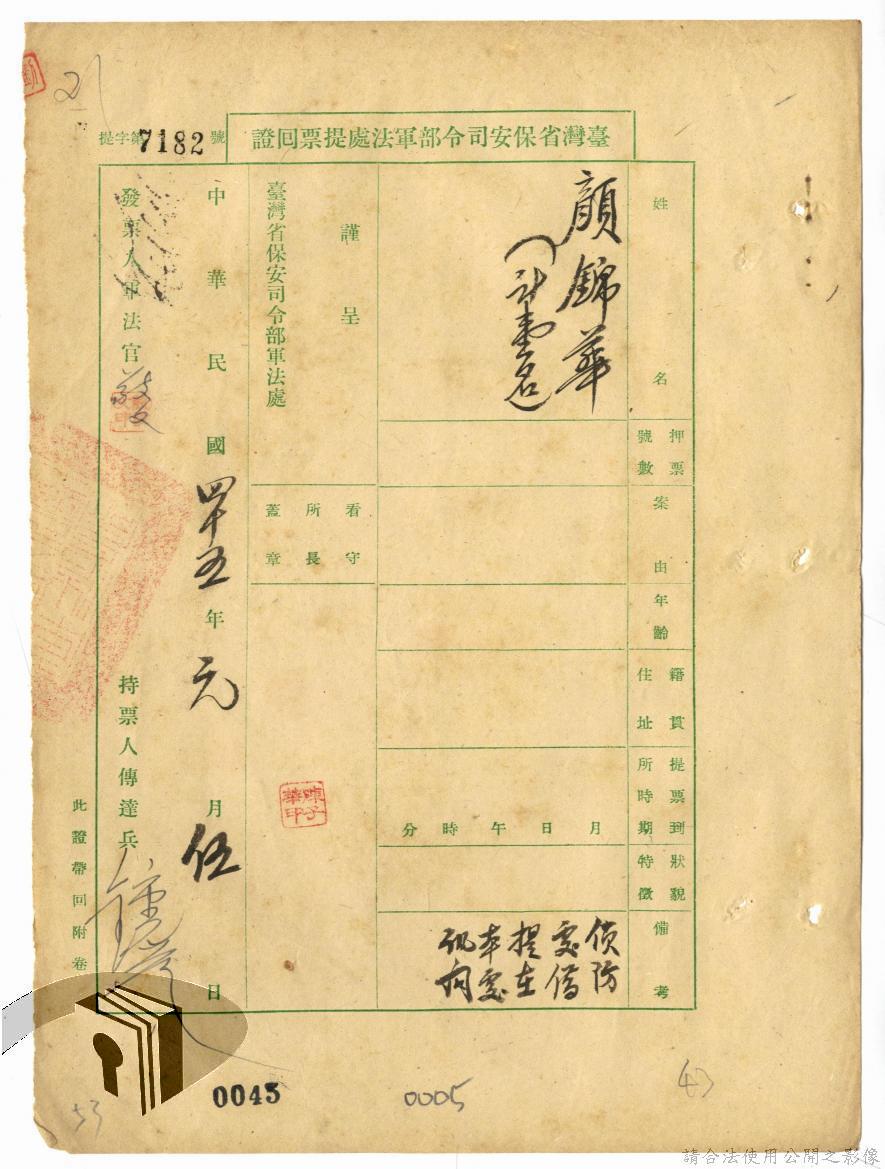 臺灣省保安司令部軍法處提票回證
提字第7182號
姓名
顏錦華
(計壹名)
押票號數
案由
年齡
籍貫住址
提票到所時期
月日午時分
狀貌特徵
備考
偵防
處借
提在
本處
訊問
謹呈
臺灣省保安司令部軍法處
看守所長蓋章
陳子華印
中華民國四十五年元月伍日
發票人軍法官
持票人傳達兵
此證帶回附卷
0045
0005
53
請合法使用公開之影像